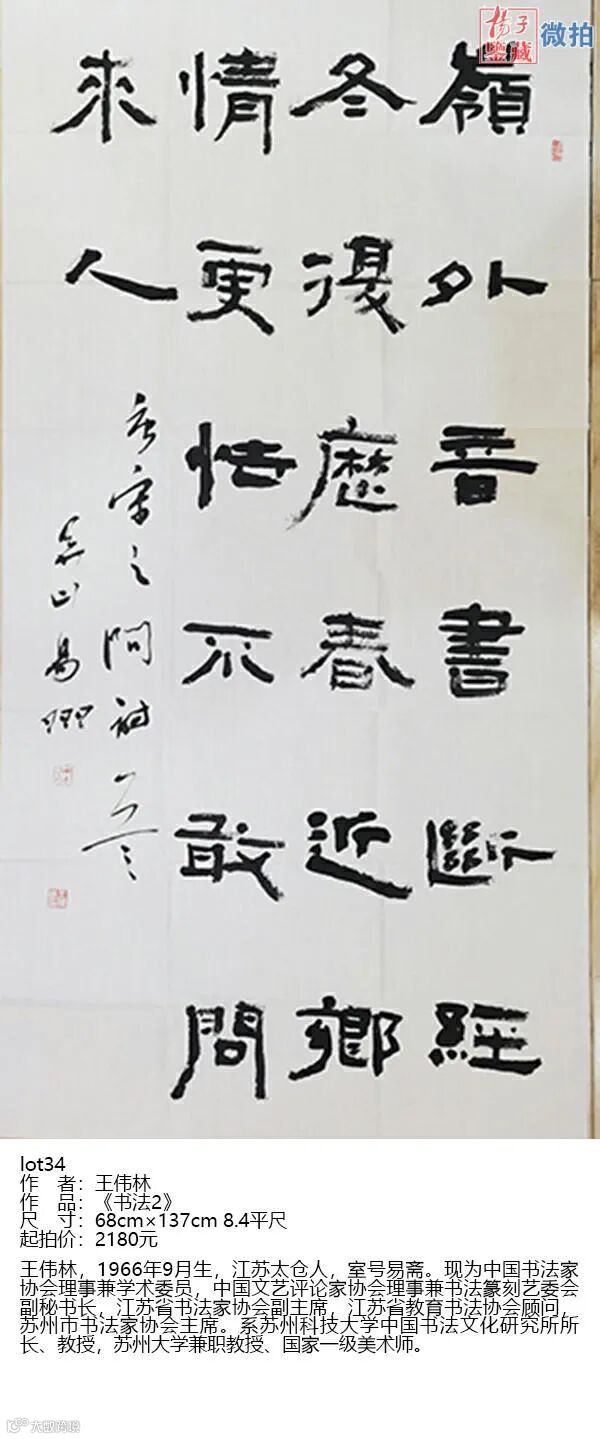 揚子
鑒藏
微拍
嶺外音書斷經
冬復歷春近鄉
情更怯不敢問
來人
唐宋之問詩一首
lot34
作 者：王伟林
作 品：《书法2》
尺 寸：68cm×137cm 8.4平尺
起拍价：2180元
王伟林，1966年9月生，江苏太仓人，室号易斋。现为中国书法家
协会理事兼学术委员，中国文艺评论家协会理事兼书法篆刻艺委会
副秘书长，江苏省书法家协会副主席，江苏省教育书法协会顾问，
苏州市书法家协会主席。系苏州科技大学中国书法文化研究所所
长、教授，苏州大学兼职教授、国家一级美术师。
大数跨境